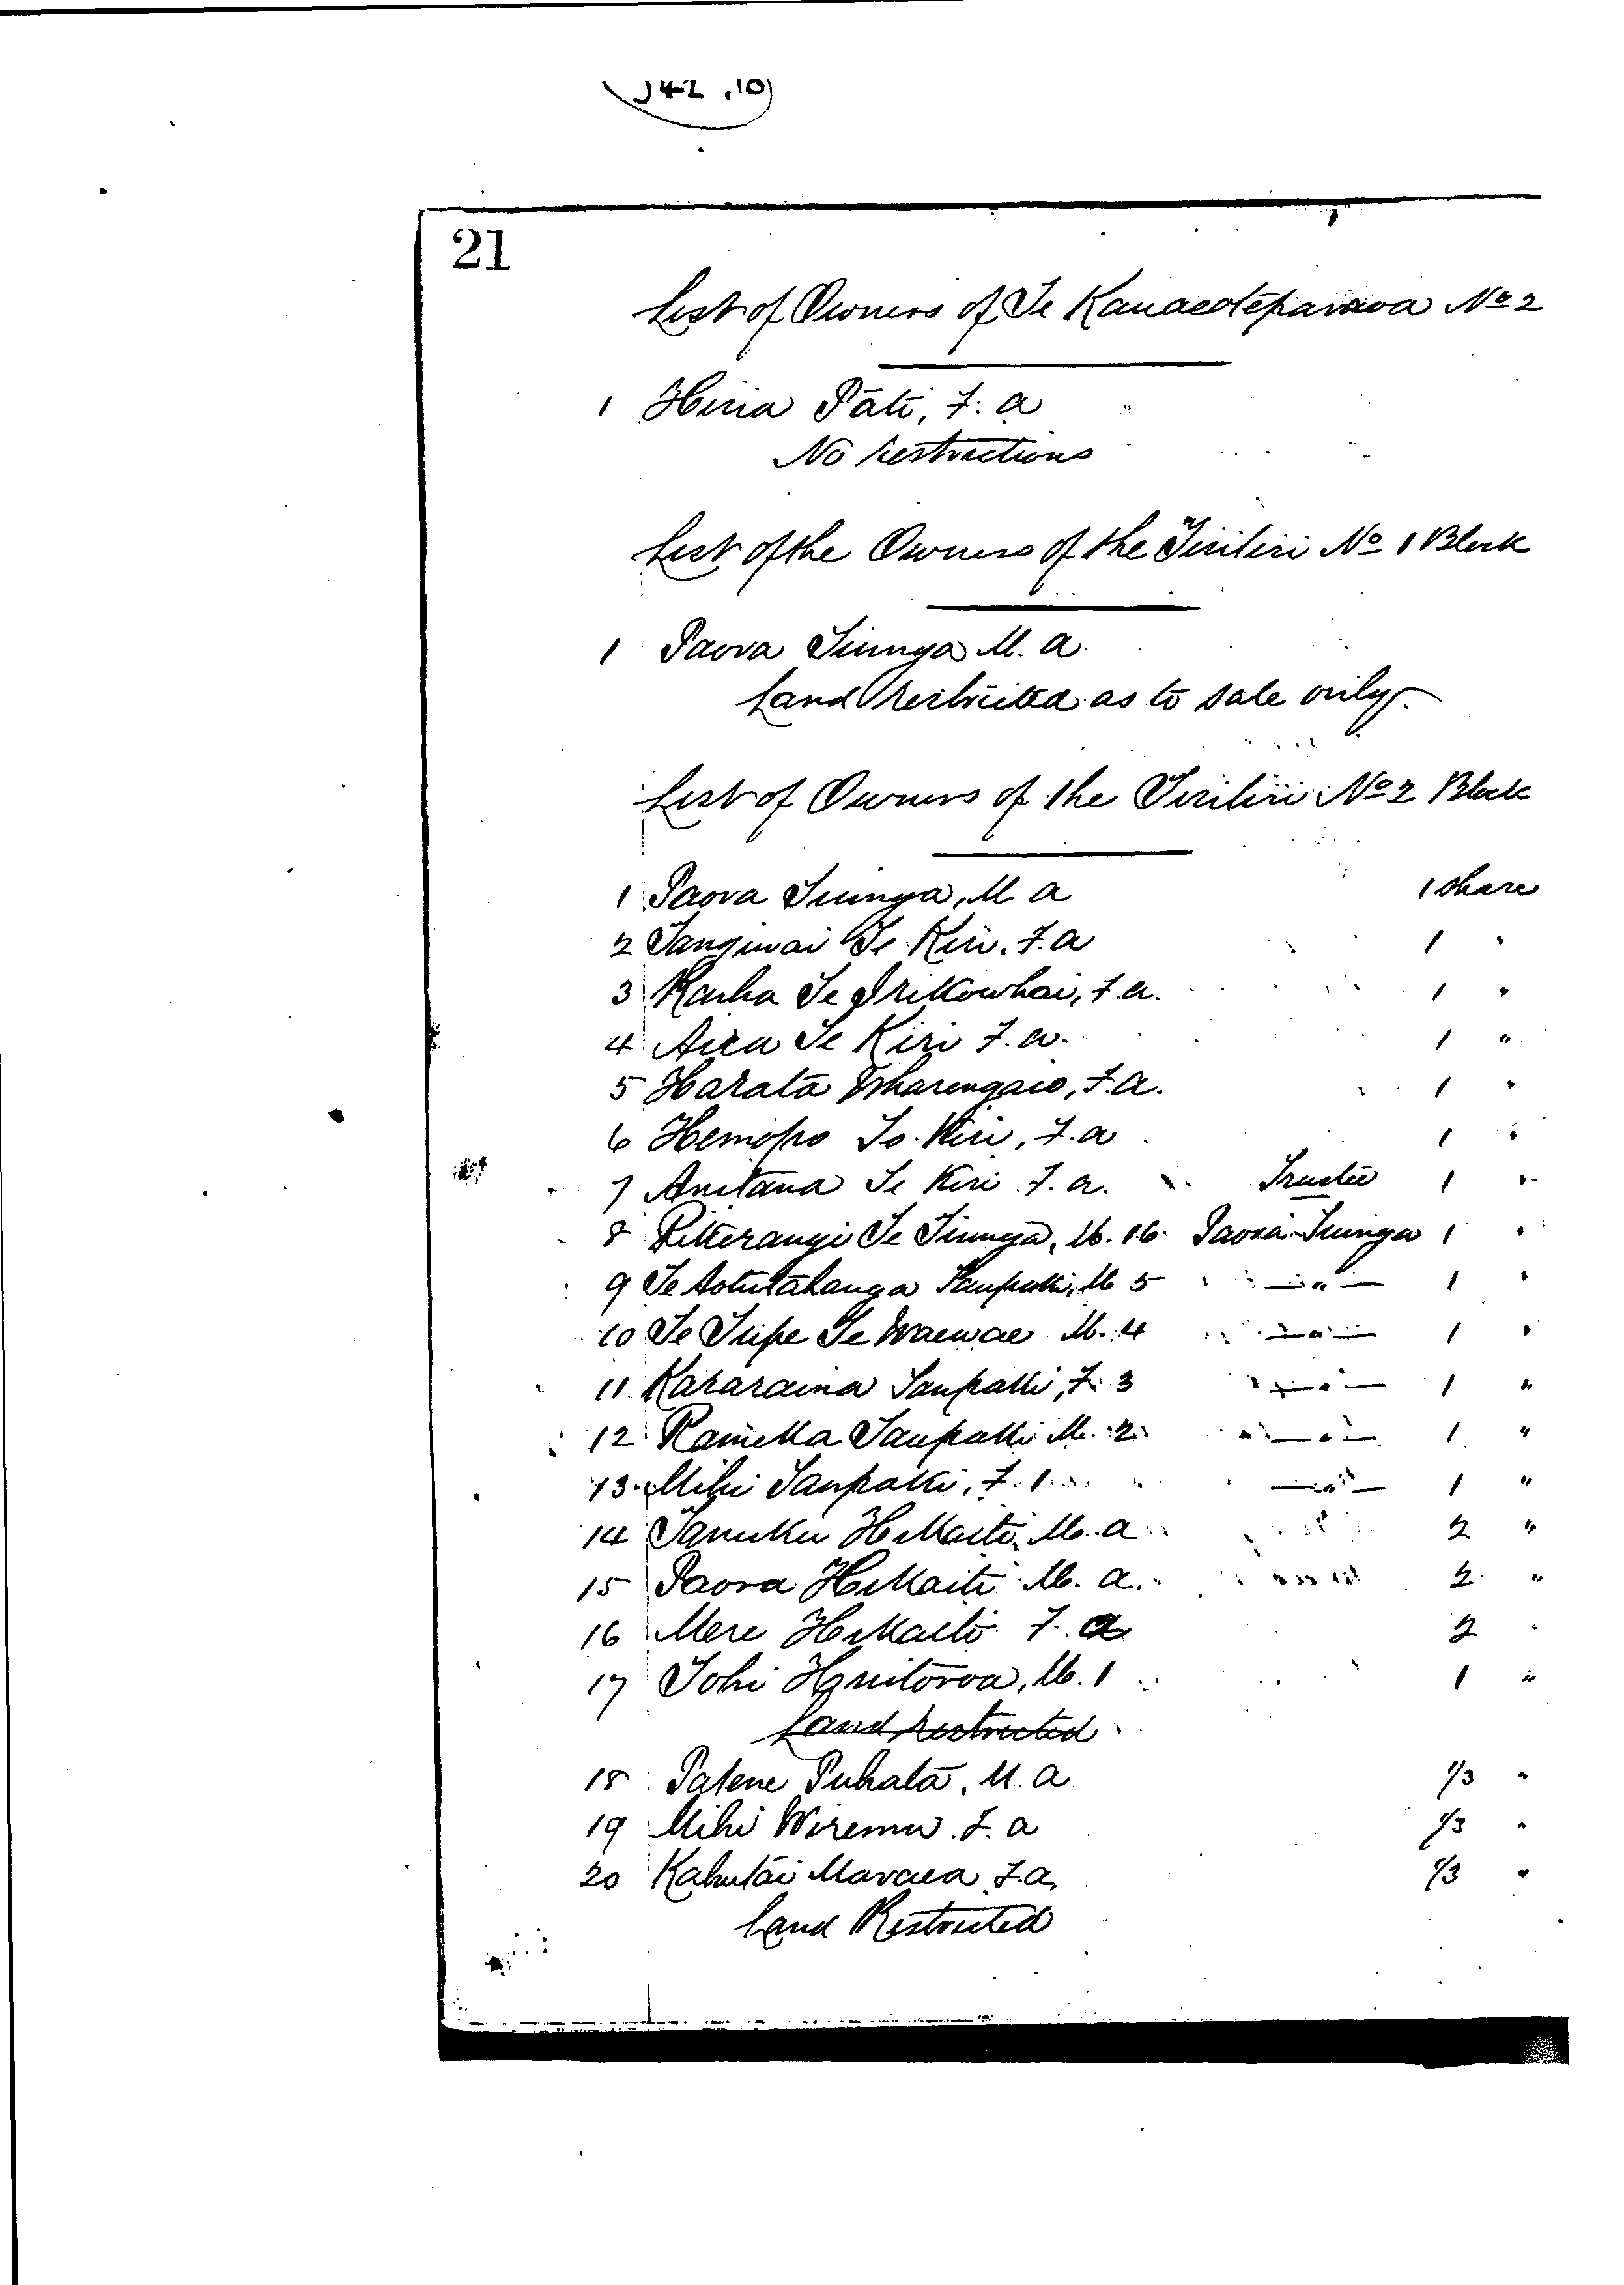 21
List of Owners of Te Kanaeoteparaoa No 2
1 Hiria Pati, F. a
No restrictions
List of the Owners of the Tiritiri No 1 Block
1 Paora Tiunga M. a
Land restricted as to sale only
List of Owners of the Tiritiri No 2 Block
1 Paora Tiunga, M a 1 share
2 Tangiwai Te Kiri. F. a 1 "
3 Te F. a. 1 "
4 Te Kiri F. a. 1 "
5 Harata Wharengaio, F. a. 1 "
6 Hemopo Te Kiri, F. a 1 "
7 Te Kiri F. a. Trustee 1 "
8 Te Tiunga, M. 16. Paora Tiunga 1 "
9 Te Taupaki, M 5 — " — 1 "
10 Te Tupe Te Waewae M. 4 — " — 1 "
11 Kararaina Taupaki, F. 3 — " — 1 "
12 Rameka Taupaki M. 2 — " — 1 "
13 Mihi Taupaki, F. 1 — " — 1 "
14 Tamuku Hikaiti, M. a 2 "
15 Paora Hikaiti M. a. 2 "
16 Mere Hikaiti F. a 2 "
17 Tohi Huitoroa, M. 1 1 "
Land restricted
18 Patene Puhata, M. a 1/3 "
19 Mihi Wiremu. F. a 1/3 "
20 Kahutai Maraea F. a, 1/3 "
Land Restricted